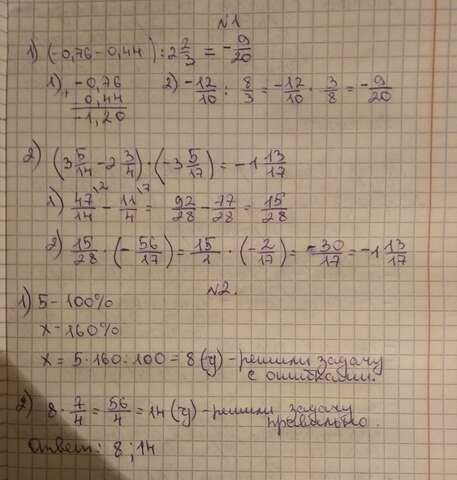 №1
1) (-0,76-0,44) : 2 2/3 = -9/20
1) -0,76
0,44
-1,20
2) -12/10 : 8/3 = -12/10 · 3/8 = -9/20
2) (3 5/14 - 2 3/4) · (-3 5/17) = -1 13/17
1) 47/14 \2 - 11/4 \7 = 92/28 - 77/28 = 15/28
2) 15/28 · (-56/17) = 15/1 · (-2/17) = -30/17 = -1 13/17
№2.
1) 5 - 100%
x - 160%
x = 5·160:100 = 8 (у) - решили задачу
с ошибками.
2) 8 · 7/4 = 56/4 = 14 (у) - решили задачу
правильно.
Ответ: 8 ; 14